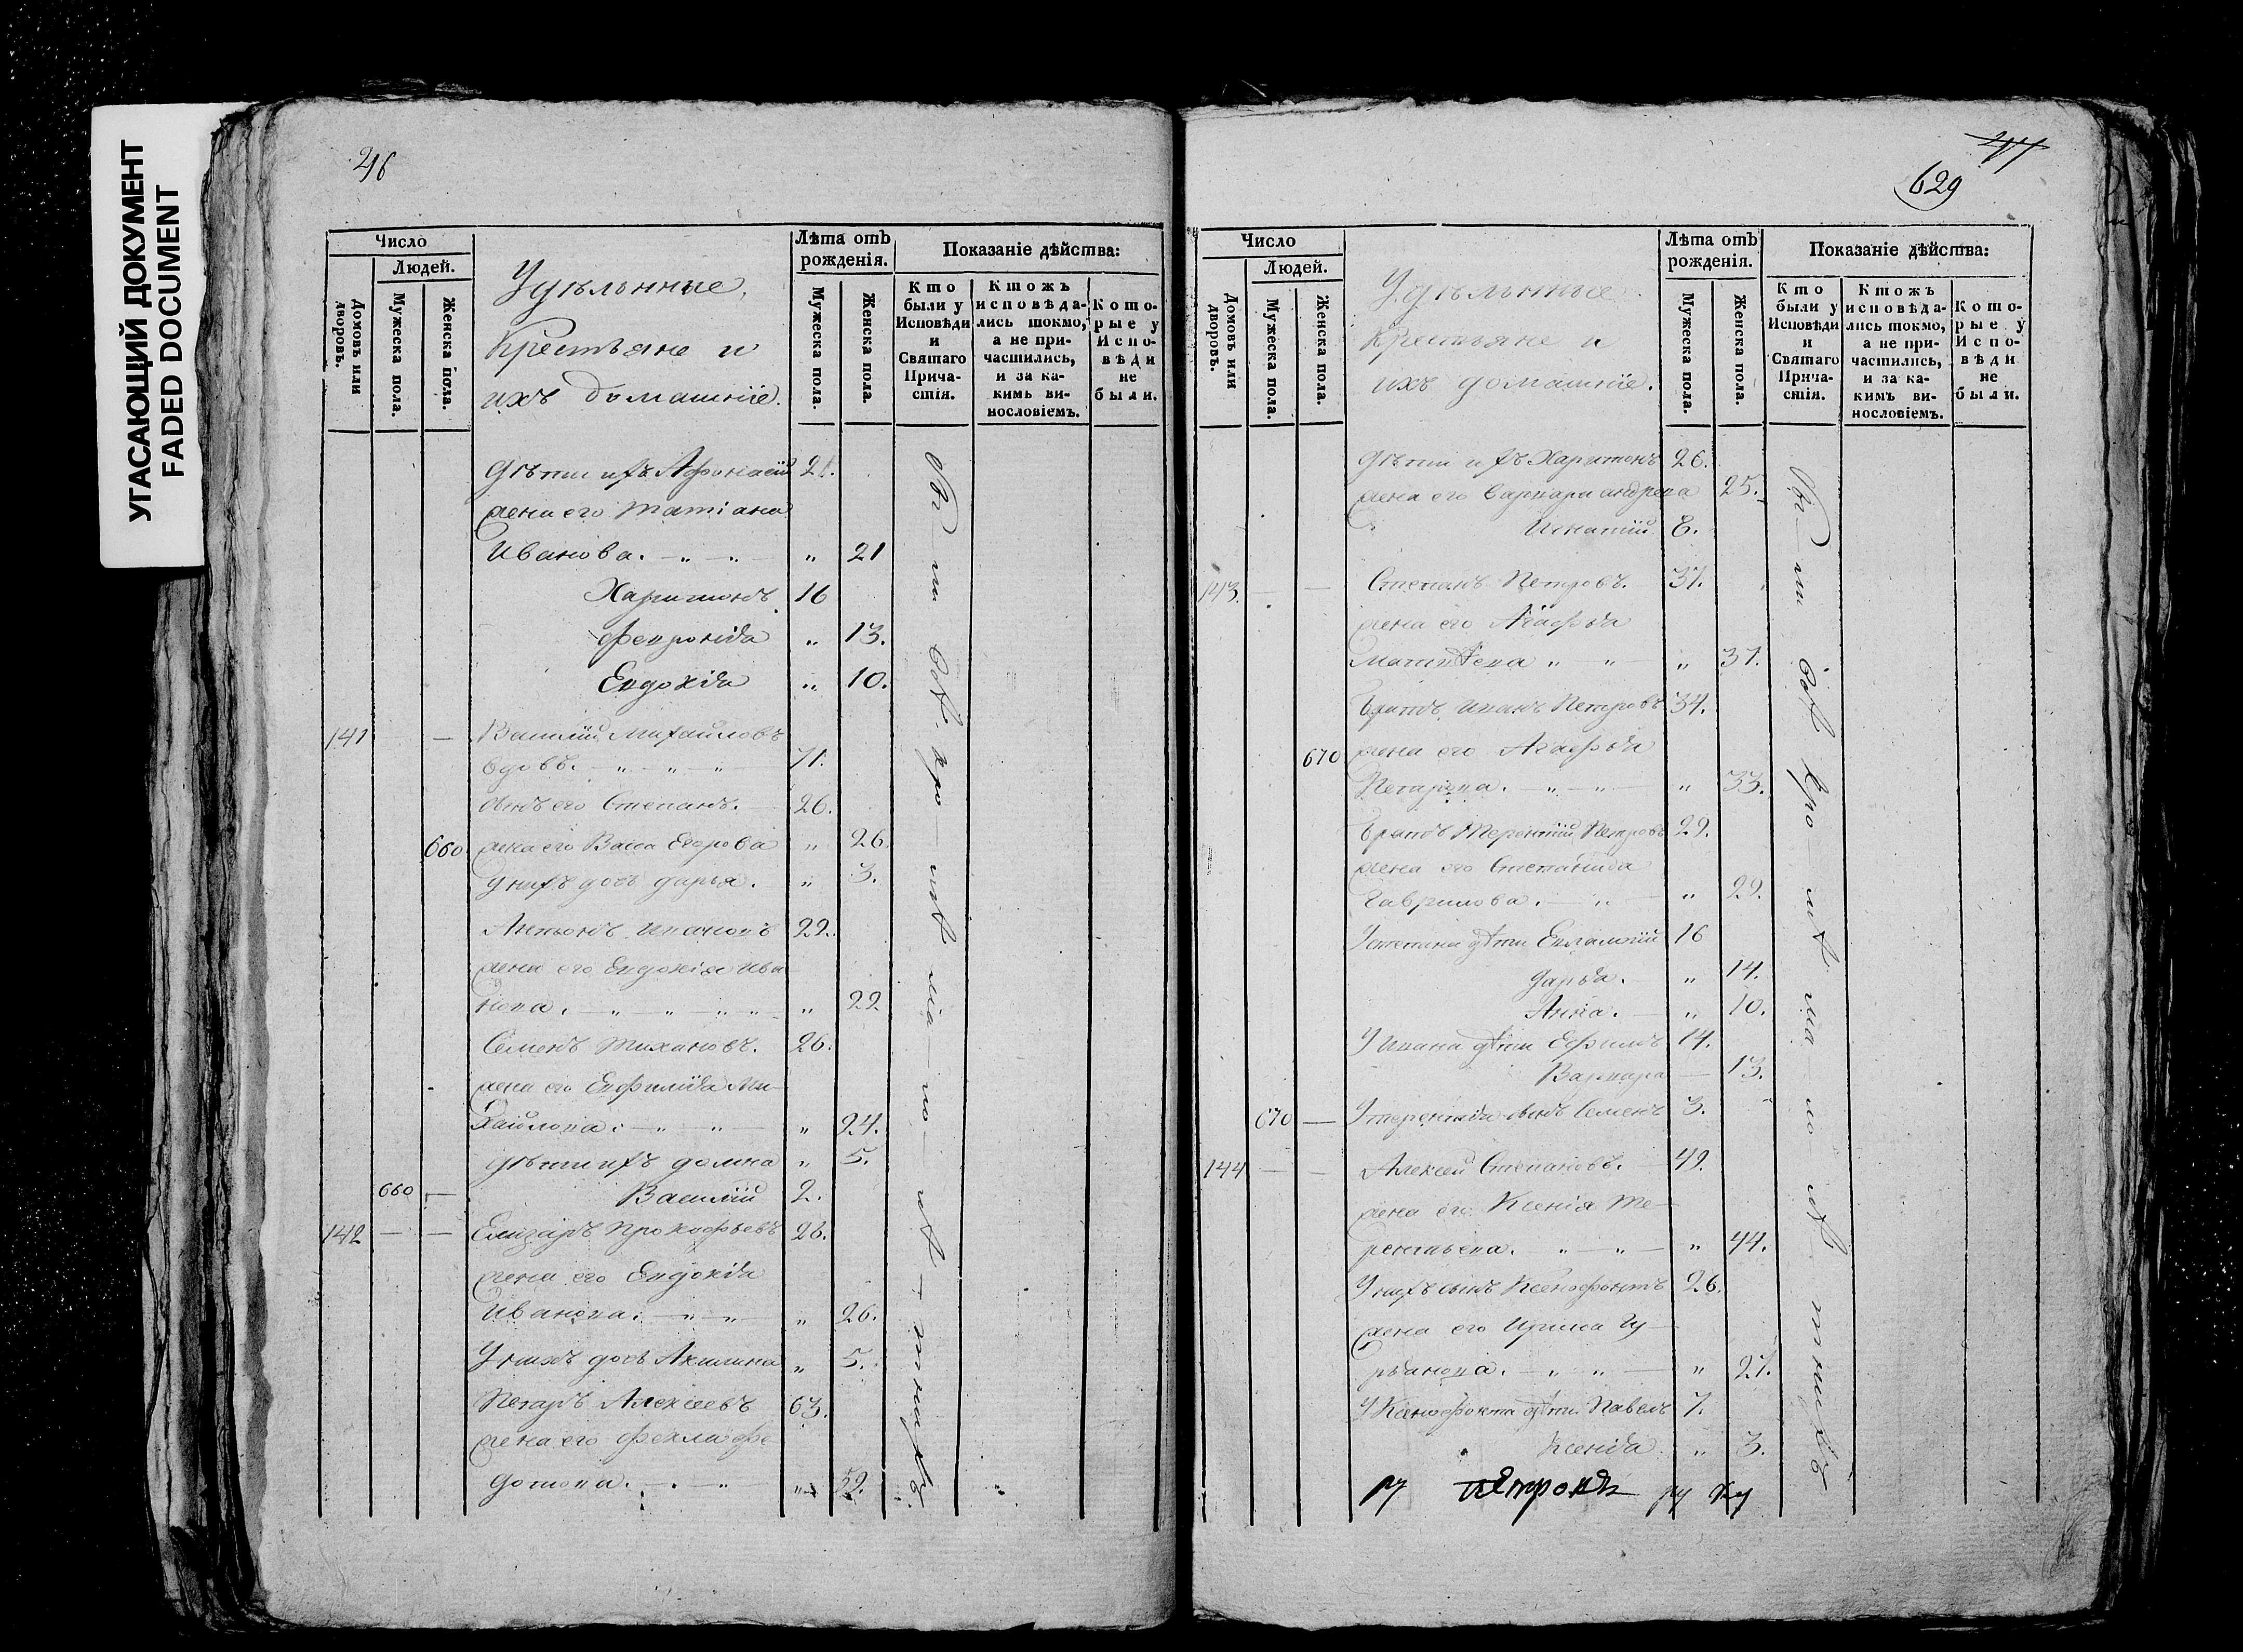 УГАСАЮЩИЙ ДОКУМЕНТ
FADED DOCUMENT
46
Число
Людей.
Домовъ или дворовъ.
Мужеска пола.
Женска пола.
Удѣльнные
Крестьяне и
ихъ домашніе.
Лѣта отъ рожденія.
Мужеска пола.
Женска пола.
Показаніе дѣйства:
Кто были у Исповѣди и Святаго Причастія.
Ктожъ исповѣдались токмо, а не причастились, и за какимъ винословіемъ.
Которые у Исповѣди не были.
Дѣти ихъ Афонасій 21.
жена его Татіана
Иванова. „ 21
Харитонъ 16
Февронія „ 13.
Евдокія „ 10.
141 — Василій Михайловъ
вдовъ. 71.
сынъ его Степанъ. 26.
660 жена его Васса Егорова „ 26
У нихъ дочь Дарья. „ 3.
Антонъ Ивановъ 22.
жена его Евдокія Ива
нова. „ 22
Семенъ Тихановъ. 26.
жена его Евфимія Ми-
хайлова. „ 24.
Дѣти ихъ Домна „ 5.
660 — Василій 2.
142 — — Елизаръ Прокофьевъ 26.
жена его Евдокія
Иванова. „ 26.
У нихъ дочь Акилина „ 5.
Петръ Алексеевъ 63.
жена его Фекла Фе
дотова. „ 59.
47
629
Число
Людей.
Домовъ или дворовъ.
Мужеска пола.
Женска пола.
Удѣльные
Крестьяне и
ихъ домашніе.
Лѣта отъ рожденія.
Мужеска пола.
Женска пола.
Показаніе дѣйства:
Кто были у Исповѣди и Святаго Причастія.
Ктожъ исповѣдались токмо, а не причастились, и за какимъ винословіемъ.
Которые у Исповѣди не были.
Дѣти ихъ Харитонъ 26.
жена его Варвара Андрева 25.
Игнатій 8.
143. — — Степанъ Петровъ. 37.
жена его Агафья
Матвѣева „ 37.
братъ Иванъ Петровъ 34.
670 жена его Агафья
„ 33.
братъ Терентій Петровъ 29.
жена его Степанида
Гаврилова. „ 29.
У Степана дѣти 16
Дарья. „ 14.
Анна. „ 10.
У Ивана дѣти Ефимъ 14.
Варвара — 13.
670 — У Терентія сынъ Семенъ 3.
144 — — Алексей Степановъ. 49.
жена его Ксенія Те-
рентьева. „ 44.
У нихъ сынъ Ксенофонтъ 26.
жена его Ирина Гу-
рьянова. „ 27.
У Ксенофонта дѣти Павелъ 7.
Ксенія „ 3.